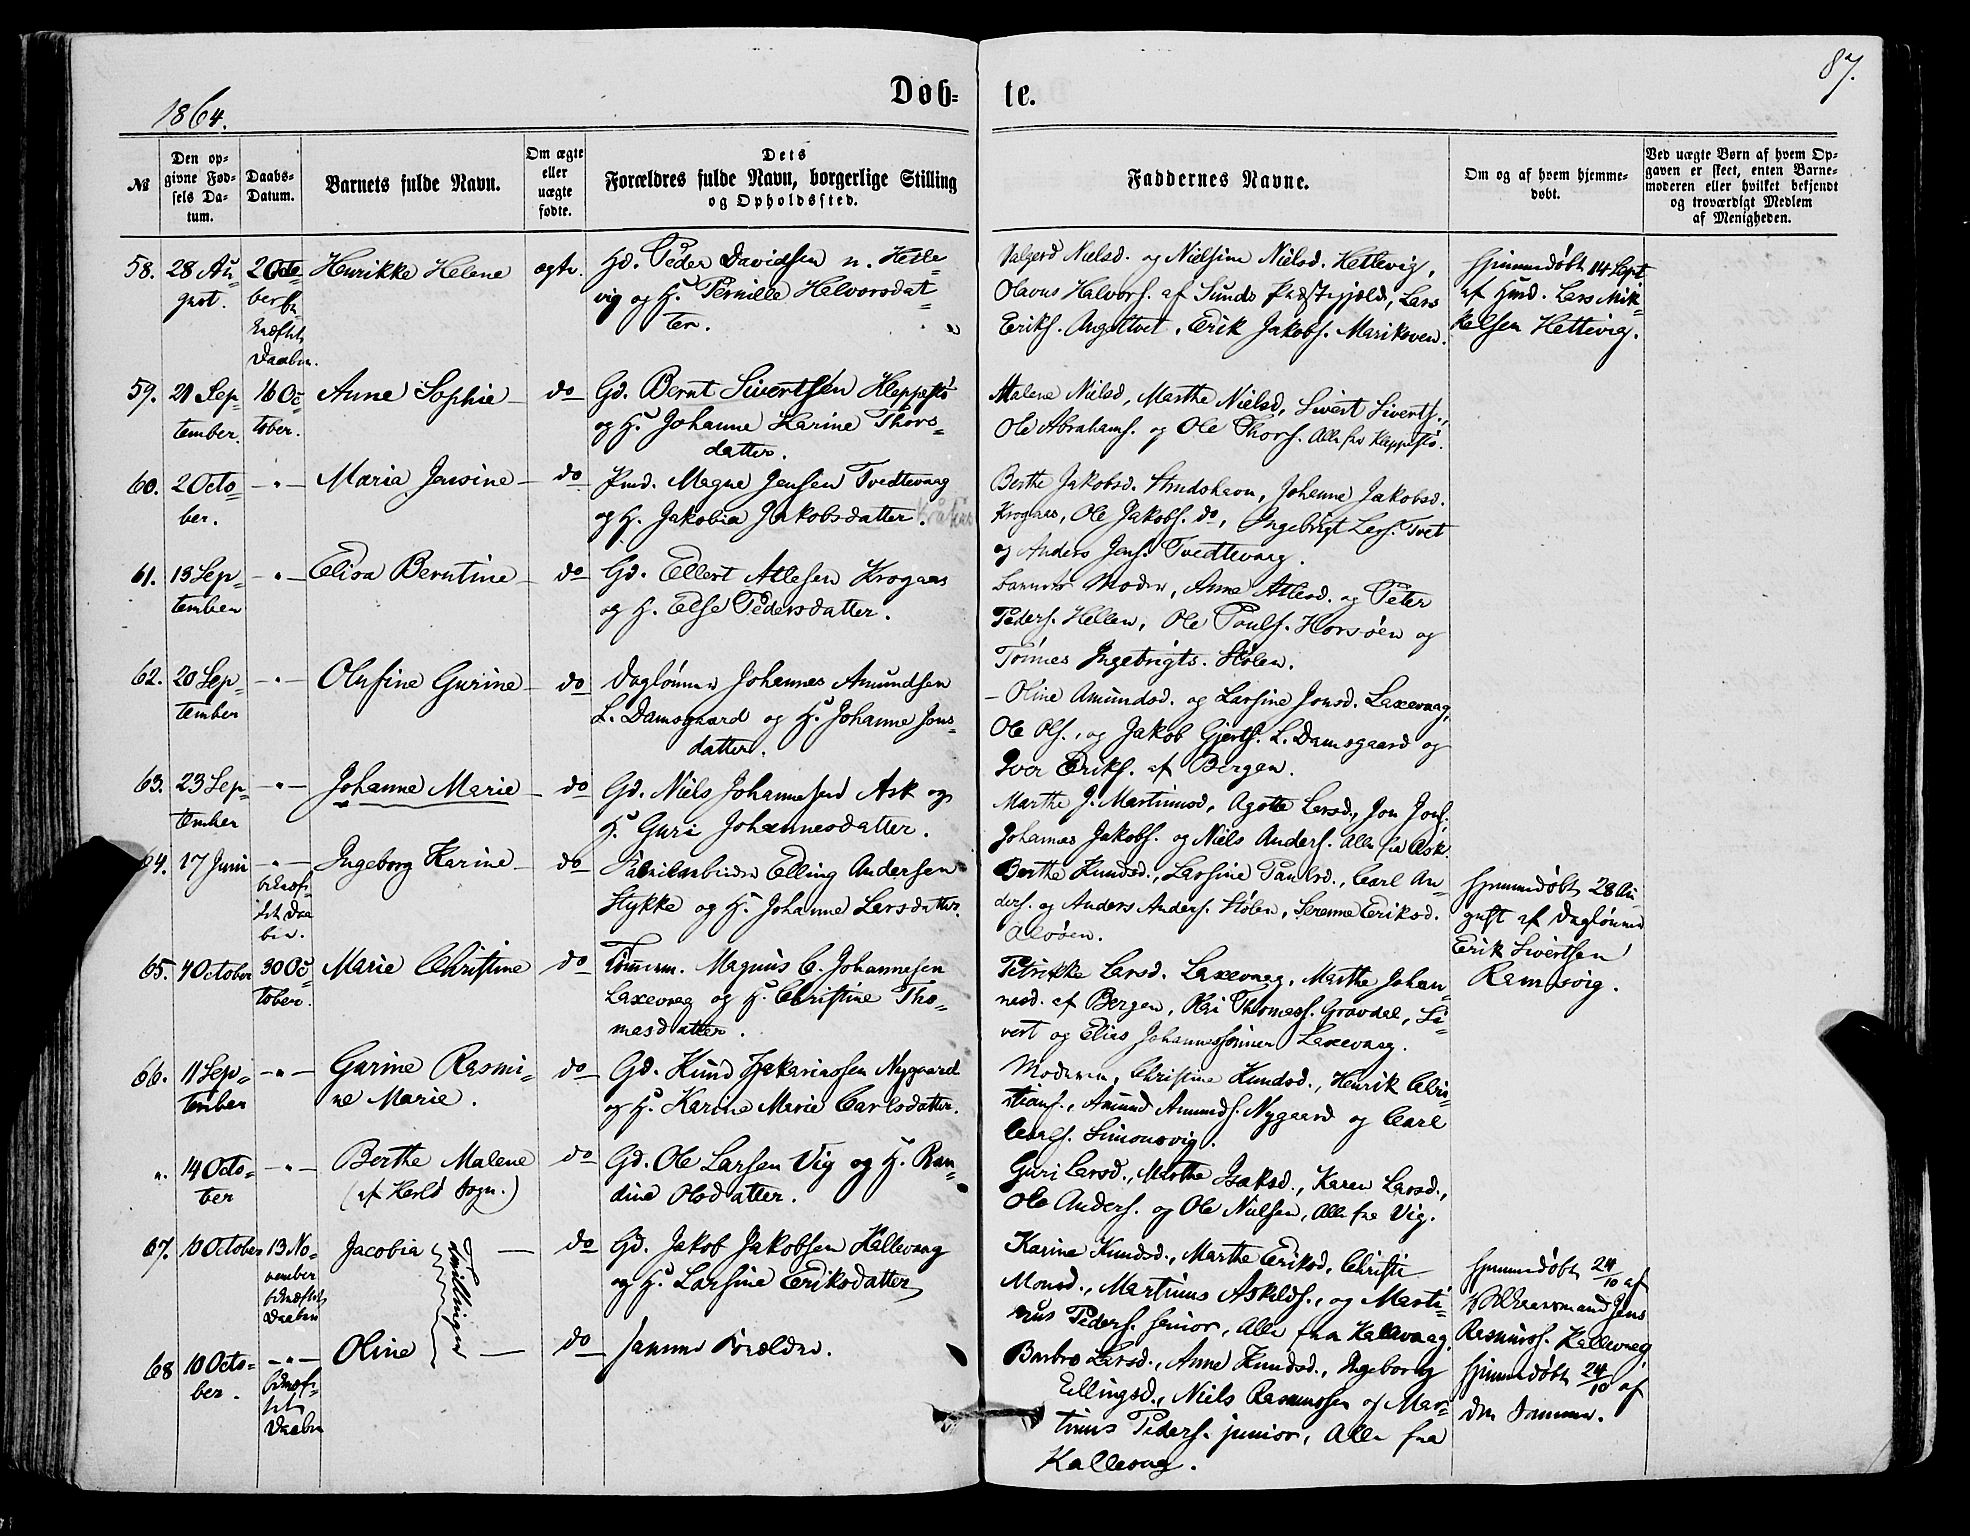 87.
1864.
Døb- te.
№
Den op-
givne Fød-
sels Da-
tum.
Daabs-
Datum.
Barnets fulde Navn.
Om ægte
eller
uægte
fødte.
Dets
Forældres fulde Navn, borgerlige Stilling
og Opholdssted.
Faddernes Navne.
Om og af hvem hjemme-
døbt.
Ved uægte Børn af hvem Op-
gaven er skeet, enten Barne-
moderen eller hvilket bekjendt
og troværdigt Medlem
af Menigheden.
58. 28 Au-
gust.
2 Octo-
ber
Daaben.
Henrikke Helene
ægte.
Peder Davidsen n. Hetle-
vig og H. Pernille Helvorsdat-
ter.
Valgerd Nielsd. og Nielsine Nielsd. Hettevig,
Olavus Halvors. af Sunds Præstegjeld, Lars
Eriks. , Erik Jakobs. Marikoven.
Hjemmedøbt 14 Sept
af Lars Mik-
kelsen Hettevig.
59. 21 Sep-
tember.
16 Oc-
tober.
Anne Sophie
do
Gd. Bernt Sivertsen Kleppestø
og H. Johanne Karine Thors-
datter.
Malene Nielsd, Marthe Nielsd, Sivert Siverts.,
Ole Abrahams. og Ole Thors. Alle fra Kleppestø.
60. 2 Octo-
ber.
-"-
Maria Jensine
do
Magne Jensen Tvedtevaag
og H. Jakobia Jakobsdatter.
Berthe Jakobsd. Strudshavn, Johanne Jakobsd.
Krogaas, Ole Jakobs. do, Ingebrigt Lars. Tvet
og Anders Jens. Tvedtevaag.
61. 13 Sep-
tember
-"-
Elisa Berntine
do
Gd. Ellert Atlesen Krogaas
og H. Else Pedersdatter.
Barnets Moder, Anne Atlesd. og Peter
Peders. Hellen, Ole Pouls. Horsøen og
Tønnes Ingebrigts. Stølen.
62. 20 Sep-
tember
-"-
Olufine Gurine
do
Daglønner Johannes Amundsen
L. Damsgaard og H. Johanne Jons-
datter.
- Oline Amundsd. og Larsine Jonsd. Laxevaag,
Ole Ols., og Jakob Gjerts. L. Damsgaard og
Iver Eriks. af Bergen.
63. 23 Sep-
tember
-"-
Johanne Marie
do
Gd. Niels Johannesen Ask og
H. Guri Johannesdatter.
Marthe J. Martinusd., Agote Larsd., Jon Jons.,
Johannes Jakobs. og Niels Anders. Alle fra Ask.
64. 17 Juni
-"-
bekræf-
tet Daa-
ben.
Ingeborg Karine
do
Fabrikarbeider Elling Andersen
Stykke og H. Johanne Larsdatter.
Berthe Knudsd., Larsine Paulsd., Carl An-
ders. og Anders Anders. Stølen, Serenne Eriksd.
Alvøen.
Hjemmedøbt 28 Au-
gust af Daglønner
Erik Sivertsen
Ramsvig.
65. 4 October
30 Oc-
tober.
Marie Christine
do
Tømerm. Magnus C. Johannesen
Laxevaag og H. Christine Tho-
masdatter.
Petrikke Larsd. Laxevaag, Marthe Johan-
nesd. af Bergen, Thomass. Gravdal, Si-
vert og Elias Johannessønner Laxevaag.
66. 11 Sep-
tember
-"-
Gurine Rasmi-
ne Marie.
do
Gd. Knud Zakariassen Nygaard
og H. Karine Marie Carlsdatter.
Moderen, Christine Knudsd., Henrik Chri-
stians., Amund Amunds. Nygaard og Carl
Carls. Simonsvig.
". 14 Octo-
ber
-"-
Berthe Malene
(af Herlø Sogn.)
do
Gd. Ole Larsen Vig og H. Ran-
dine Olsdatter.
Guri Larsd., Marthe Isaksd., Karen Larsd.,
Ole Anders. og Ole Nielsen, Alle fra Vig.
67. 10 October
13 No-
vember
bekræftet
Daaben
Jacobia
Tvillinger
do
Gd. Jakob Jakobsen Kallevaag
og H. Larsine Eriksdatter
Karine Knudsd., Marthe Eriksd., Christi
Monsd., Martinus Askilds., og Marti-
nus Peders. senior, Alle fra Kallevaag.
Hjemmedøbt 24/10 af
Jens
Rasmuss. Kallevaag.
68 10 Octo-
ber.
-"-
bekræf-
tet
Daaben
Oline
do
Samme Forældre.
Barbro Larsd., Anne Knudsd., Ingeborg
Ellingsd., Niels Rasmussen og Mar-
tinus Peders. junior, Alle fra
Kallevaag.
Hjemmedøbt 24/10 af
den Samme.